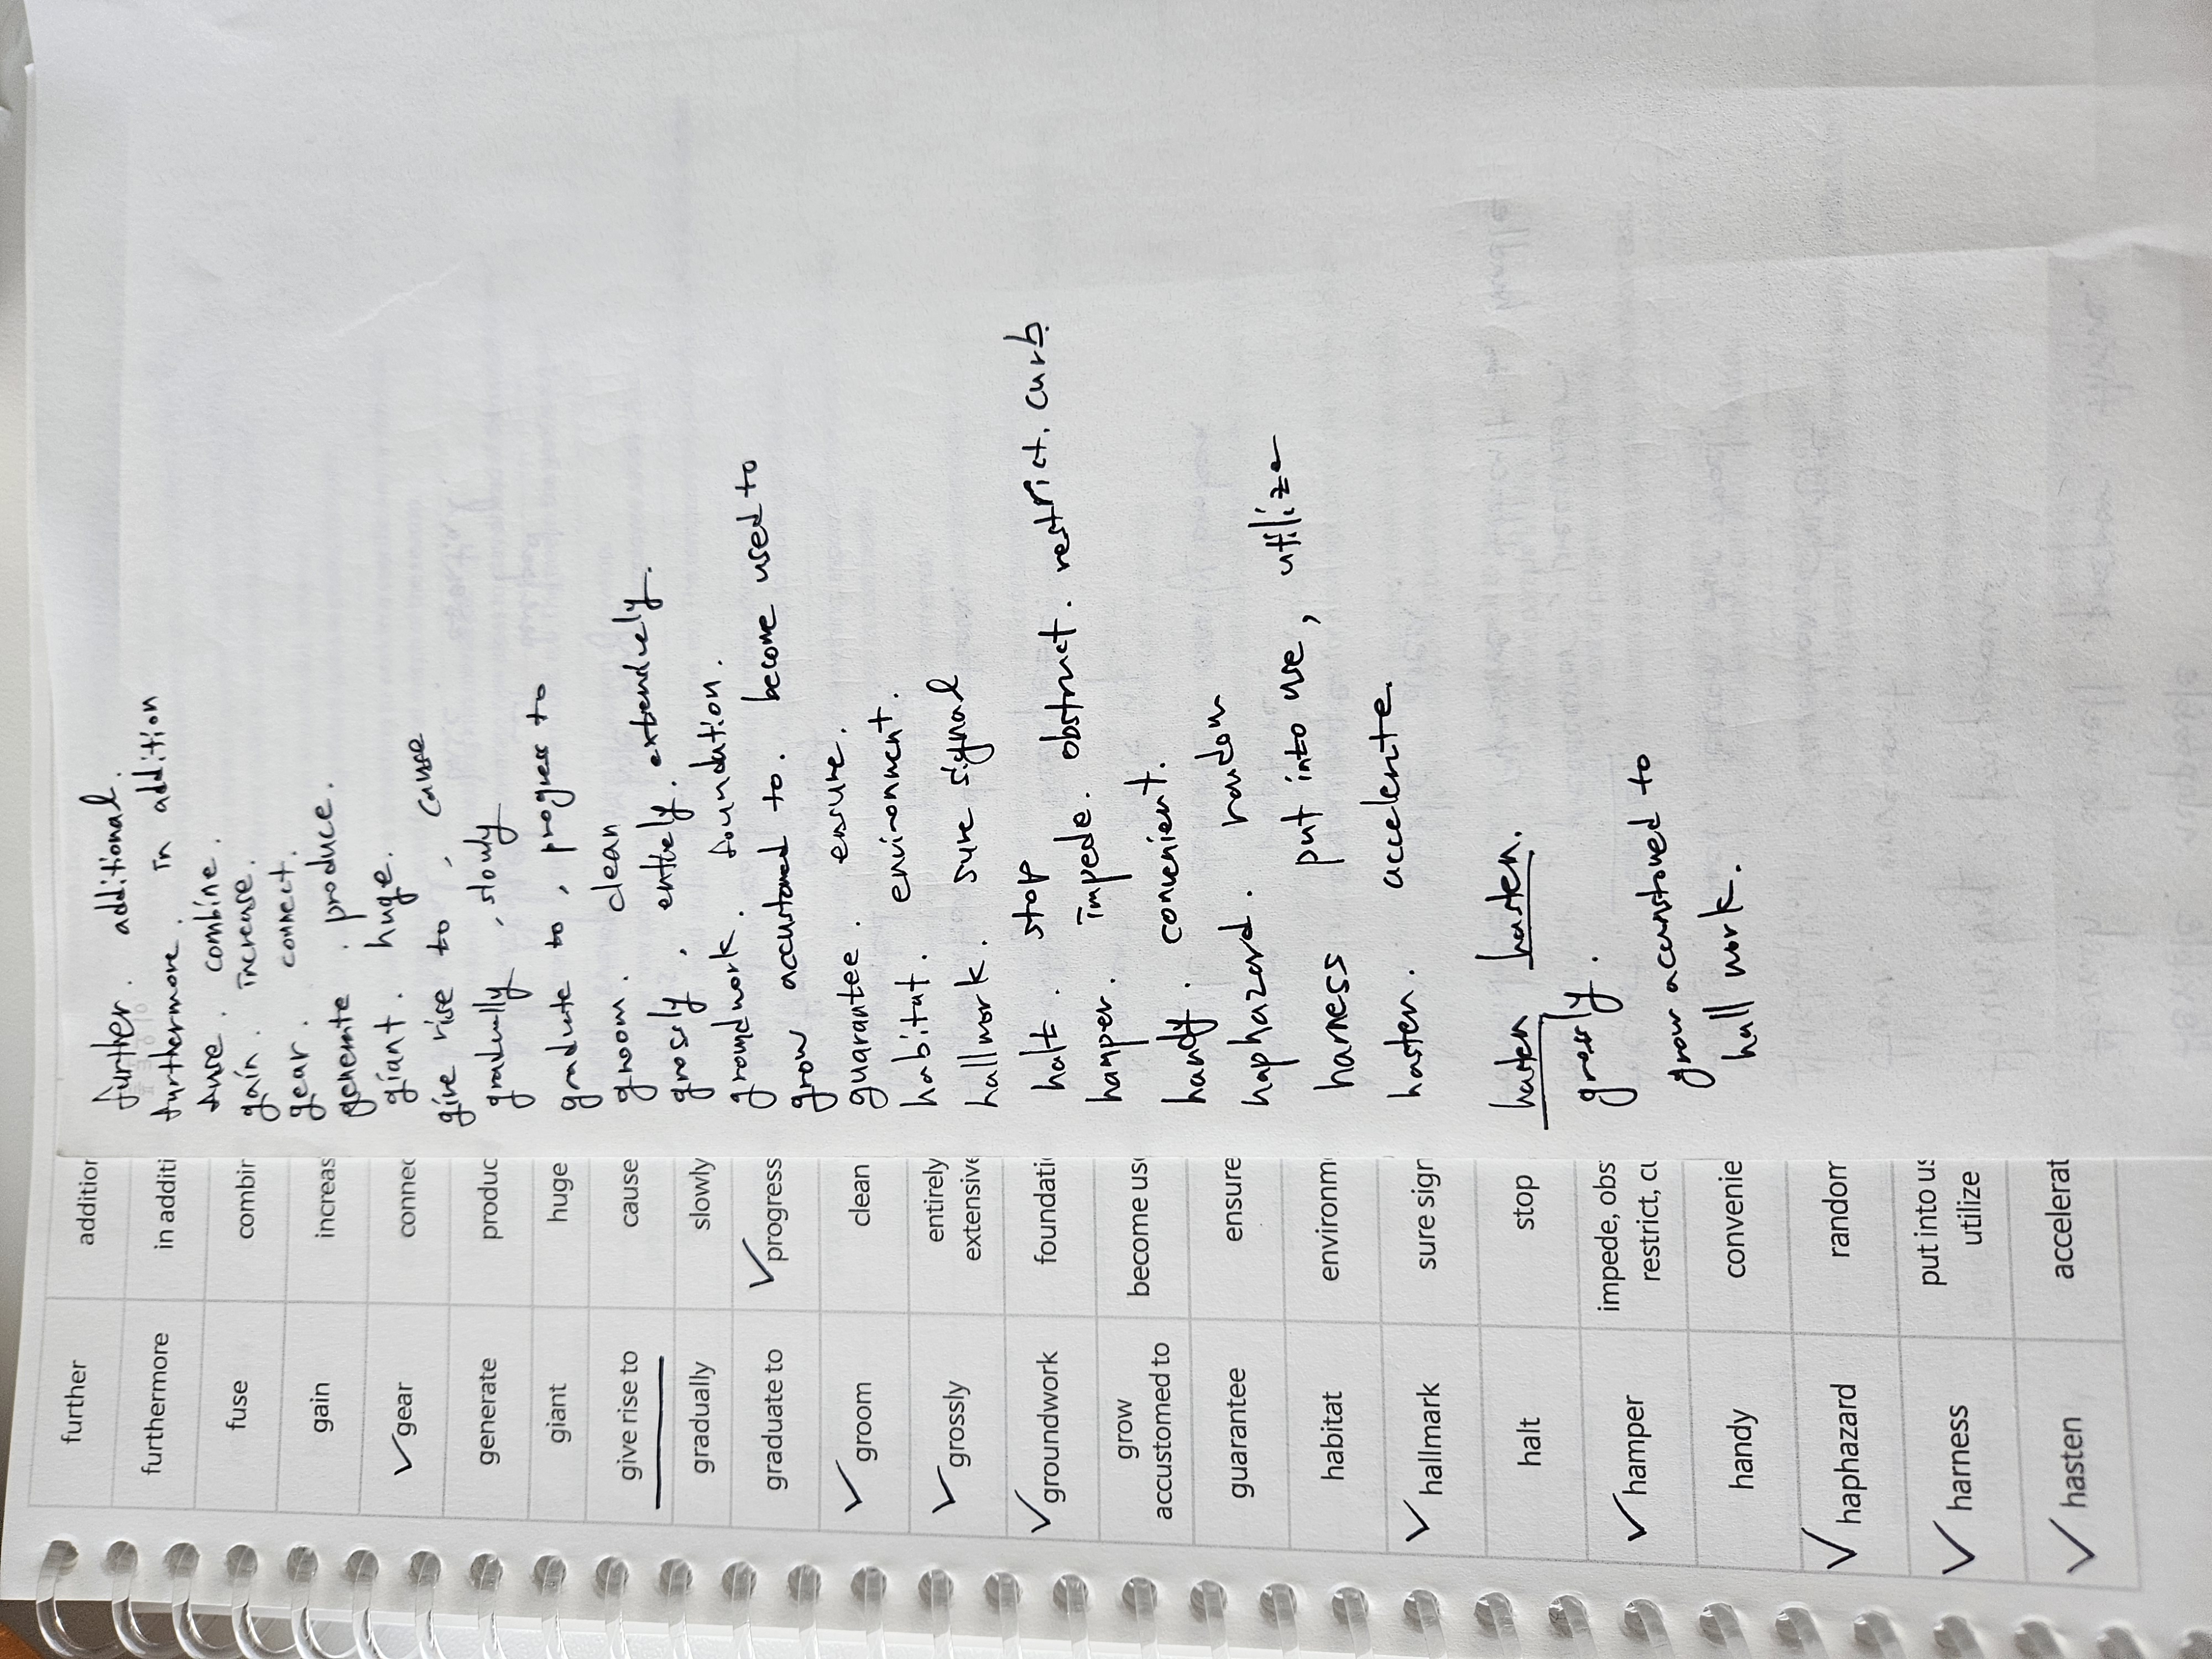 further addition
furthermore in additi
fuse combin
gain increas
✓ gear connec
generate produc
giant huge
give rise to cause
gradually slowly
graduate to ✓ progress
✓ groom clean
✓ grossly entirely
extensive
✓ groundwork foundati
grow
accustomed to become use
guarantee ensure
habitat environm
✓ hallmark sure sign
halt stop
✓ hamper impede, obs
restrict, cu
handy convenie
✓ haphazard random
✓ harness put into us
utilize
✓ hasten accelerat
further. additional.
furthermore. in addition
fuse. combine.
gain. increase.
gear. connect.
generate. produce.
giant. huge.
give rise to, cause
gradually, slowly
graduate to, progress to
groom. clean
grossly. entirely. extendively.
groundwork. foundation.
grow accustomed to. become used to
guarantee. ensure.
habitat. environment.
hallmork. sure signal
halt. stop
hamper. impede. obstruct. restrict. curb
handy. convenient.
haphazard. random
harness put into use, utilize
hasten. accelerate
hasten hasten.
grossly.
grow accunstoved to
hall work.